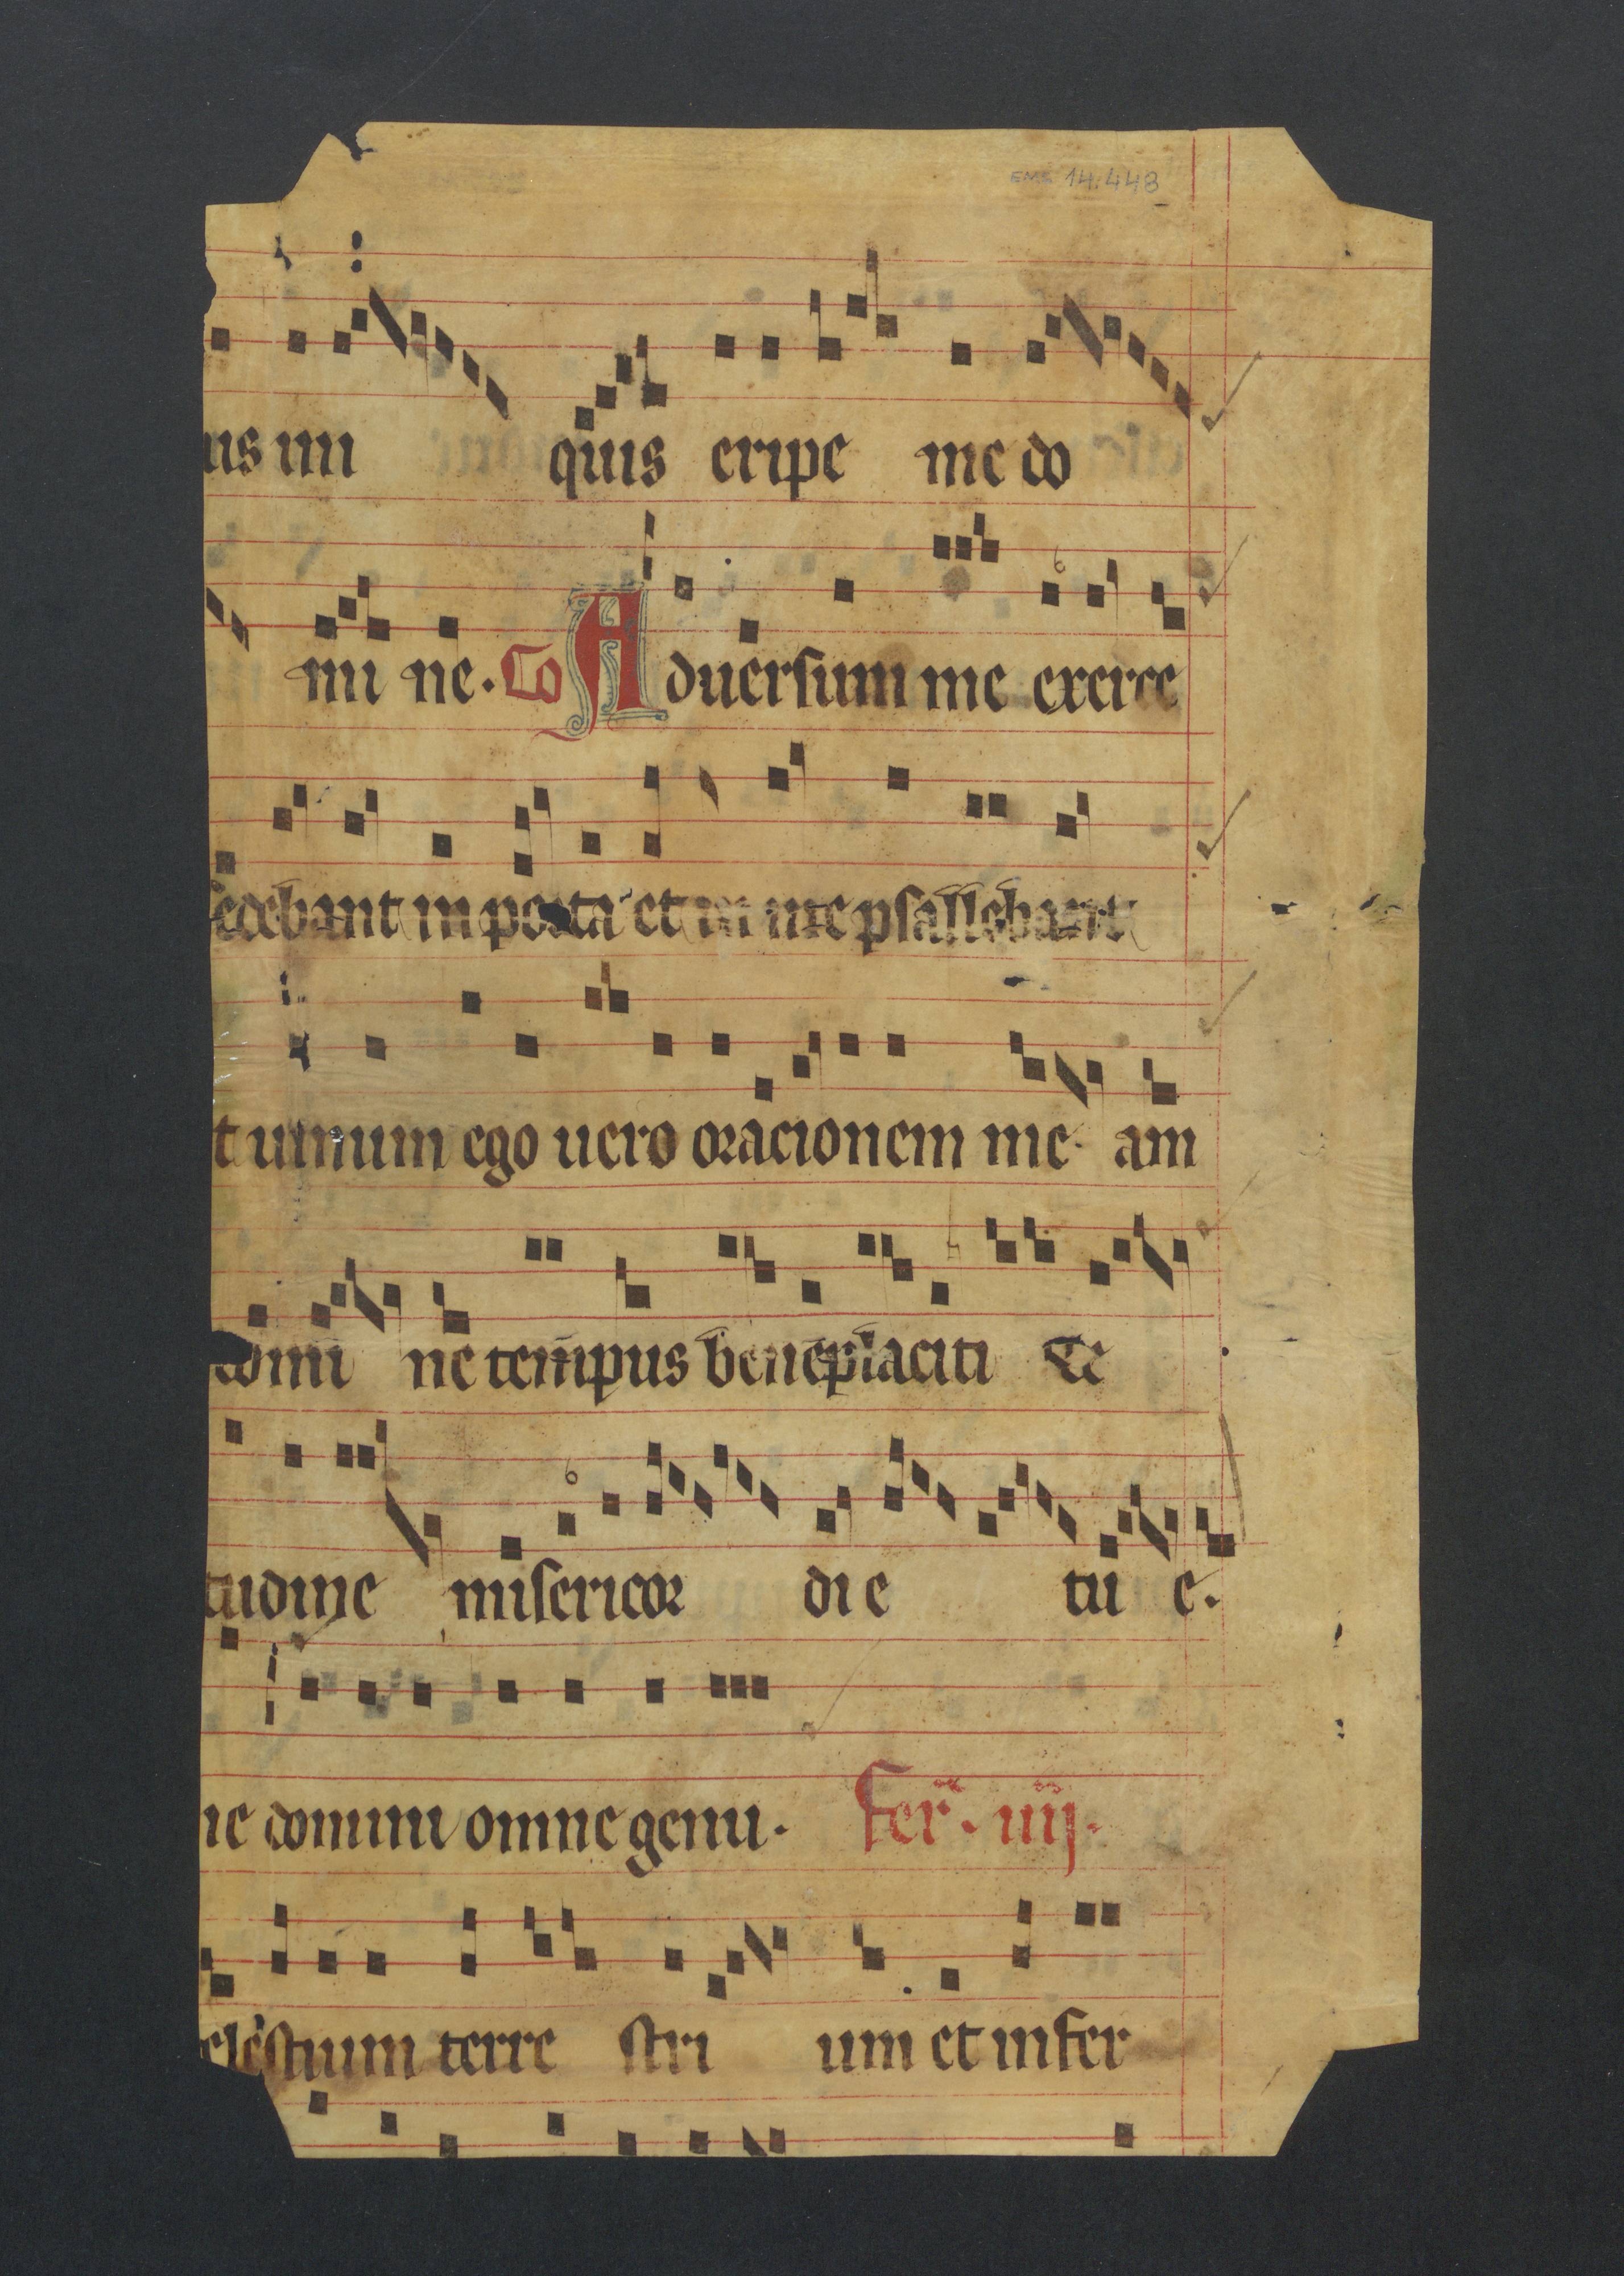 EMS 14.448
us ini quis eripe me do
mi ne. Co Aduersum me exerce
sedebant in porta et in me psallebant
t uinum ego uero oracionem me am
domi ne tempus beneplaciti de
tudine misericor die tu e.
ne domini omne genu. Fer. iiij.
elestium terre stri um et infer